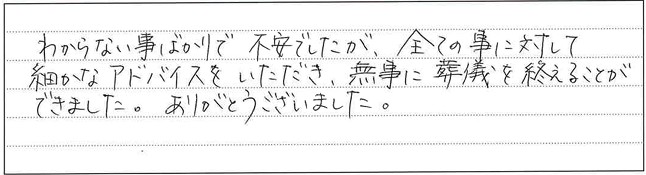 わからない事ばかりで 不安でしたが、全ての事に対して
細かなアドバイスを いただき、無事に 葬儀を終えることが
できました。 ありがとうございました。